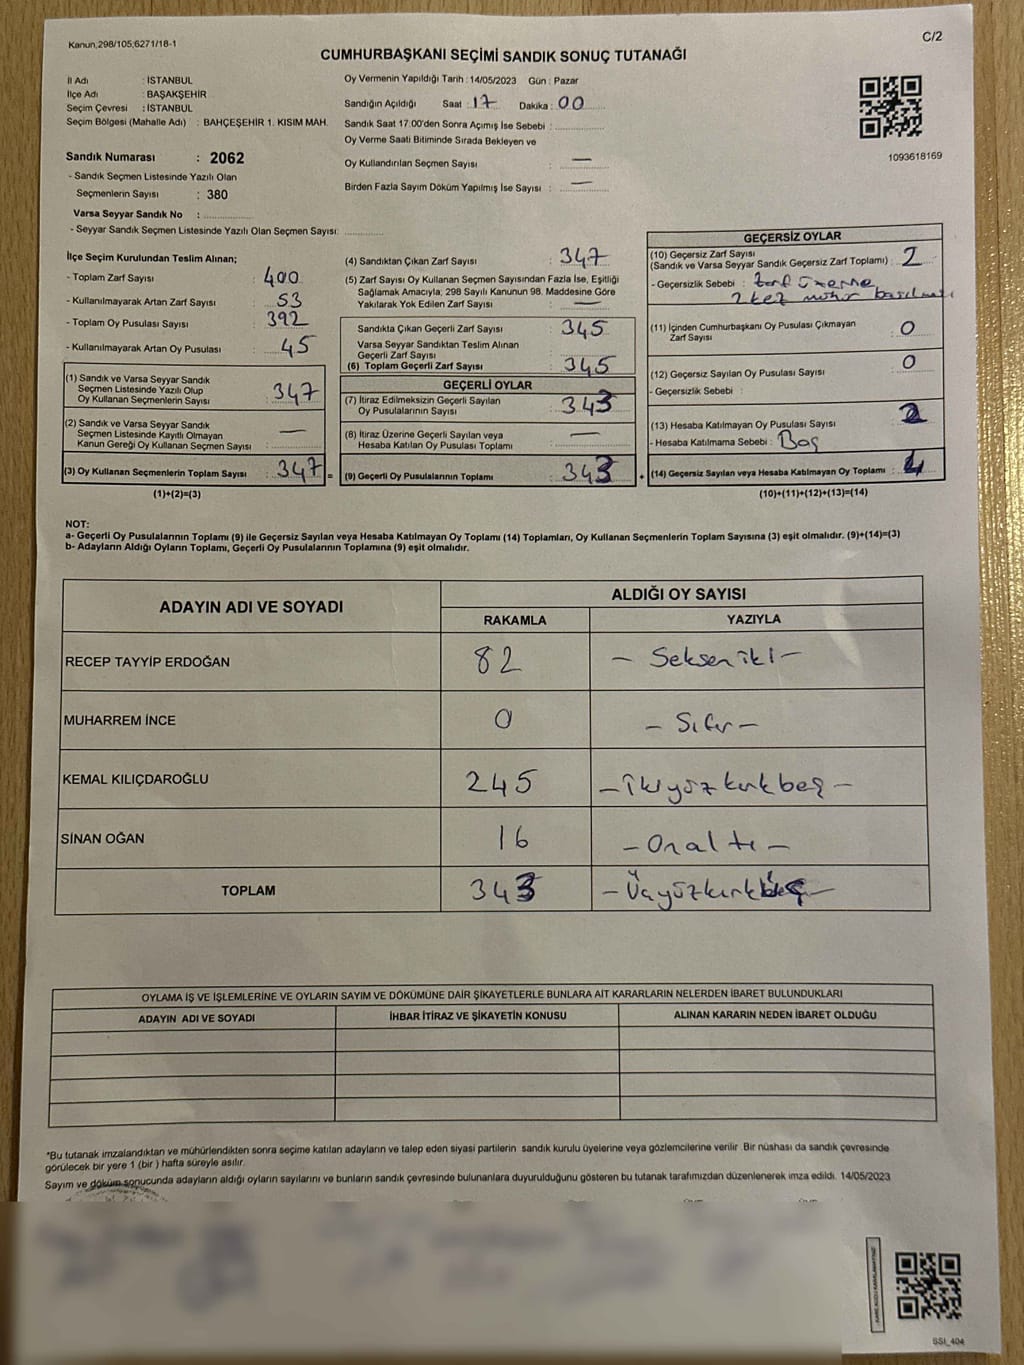 Kanun,298/105,6271/18-1
C/2
CUMHURBAŞKANI SEÇİMİ SANDIK SONUÇ TUTANAĞI
İl Adı : İSTANBUL
İlçe Adı : BAŞAKŞEHİR
Seçim Çevresi : İSTANBUL
Seçim Bölgesi (Mahalle Adı) : BAHÇEŞEHİR 1. KISIM MAH.
Sandık Numarası : 2062
- Sandık Seçmen Listesinde Yazılı Olan
Seçmenlerin Sayısı : 380
Varsa Seyyar Sandık No :
- Seyyar Sandık Seçmen Listesinde Yazılı Olan Seçmen Sayısı:
Oy Vermenin Yapıldığı Tarih : 14/05/2023 Gün : Pazar
Sandığın Açıldığı Saat : 17 Dakika : 00
Sandık Saat 17:00'den Sonra Açımış İse Sebebi :
Oy Verme Saati Bitiminde Sırada Bekleyen ve
Oy Kullandırılan Seçmen Sayısı : —
Birden Fazla Sayım Döküm Yapılmış İse Sayısı : —
1093618169
İlçe Seçim Kurulundan Teslim Alınan;
- Toplam Zarf Sayısı : 400
- Kullanılmayarak Artan Zarf Sayısı : 53
- Toplam Oy Pusulası Sayısı : 392
- Kullanılmayarak Artan Oy Pusulası : 45
(1) Sandık ve Varsa Seyyar Sandık
Seçmen Listesinde Yazılı Olup
Oy Kullanan Seçmenlerin Sayısı : 347
(2) Sandık ve Varsa Seyyar Sandık
Seçmen Listesinde Kayıtlı Olmayan
Kanun Gereği Oy Kullanan Seçmen Sayısı : —
(3) Oy Kullanan Seçmenlerin Toplam Sayısı : 347 =
(1)+(2)=(3)
(4) Sandıktan Çıkan Zarf Sayısı : 347
(5) Zarf Sayısı Oy Kullanan Seçmen Sayısından Fazla İse, Eşitliği
Sağlamak Amacıyla, 298 Sayılı Kanunun 98. Maddesine Göre
Yakılarak Yok Edilen Zarf Sayısı : —
Sandıkta Çıkan Geçerli Zarf Sayısı : 345
Varsa Seyyar Sandıktan Teslim Alınan
Geçerli Zarf Sayısı :
(6) Toplam Geçerli Zarf Sayısı : 345
GEÇERLİ OYLAR
(7) İtiraz Edilmeksizin Geçerli Sayılan
Oy Pusulalarının Sayısı : 343
(8) İtiraz Üzerine Geçerli Sayılan veya
Hesaba Katılan Oy Pusulası Toplamı : —
(9) Geçerli Oy Pusulalarının Toplamı : 343 +
GEÇERSİZ OYLAR
(10) Geçersiz Zarf Sayısı
(Sandık ve Varsa Seyyar Sandık Geçersiz Zarf Toplamı) : 2
- Geçersizlik Sebebi : zarf üzerine
2 kez mühür basılması
(11) İçinden Cumhurbaşkanı Oy Pusulası Çıkmayan
Zarf Sayısı : 0
(12) Geçersiz Sayılan Oy Pusulası Sayısı : 0
- Geçersizlik Sebebi :
(13) Hesaba Katılmayan Oy Pusulası Sayısı : 2
- Hesaba Katılmama Sebebi : Boş
(14) Geçersiz Sayılan veya Hesaba Katılmayan Oy Toplamı : 4
(10)+(11)+(12)+(13)=(14)
NOT:
a- Geçerli Oy Pusulalarının Toplamı (9) ile Geçersiz Sayılan veya Hesaba Katılmayan Oy Toplamı (14) Toplamları, Oy Kullanan Seçmenlerin Toplam Sayısına (3) eşit olmalıdır. (9)+(14)=(3)
b- Adayların Aldığı Oyların Toplamı, Geçerli Oy Pusulalarının Toplamına (9) eşit olmalıdır.
ADAYIN ADI VE SOYADI
ALDIĞI OY SAYISI
RAKAMLA YAZIYLA
RECEP TAYYİP ERDOĞAN 82 – Seksen iki –
MUHARREM İNCE 0 – Sıfır –
KEMAL KILIÇDAROĞLU 245 – ikiyüzkırkbeş –
SİNAN OĞAN 16 – Onaltı –
TOPLAM 343 – Üçyüzkırk
OYLAMA İŞ VE İŞLEMLERİNE VE OYLARIN SAYIM VE DÖKÜMÜNE DAİR ŞİKAYETLERLE BUNLARA AİT KARARLARIN NELERDEN İBARET BULUNDUKLARI
ADAYIN ADI VE SOYADI İHBAR İTİRAZ VE ŞİKAYETİN KONUSU ALINAN KARARIN NEDEN İBARET OLDUĞU
*Bu tutanak imzalandıktan ve mühürlendikten sonra seçime katılan adayların ve talep eden siyasi partilerin sandık kurulu üyelerine veya gözlemcilerine verilir. Bir nüshası da sandık çevresinde
görülecek bir yere 1 (bir) hafta süreyle asılır.
Sayım ve döküm sonucunda adayların aldığı oyların sayılarını ve bunların sandık çevresinde bulunanlara duyurulduğunu gösteren bu tutanak tarafımızdan düzenlenerek imza edildi. 14/05/2023
SSI_404